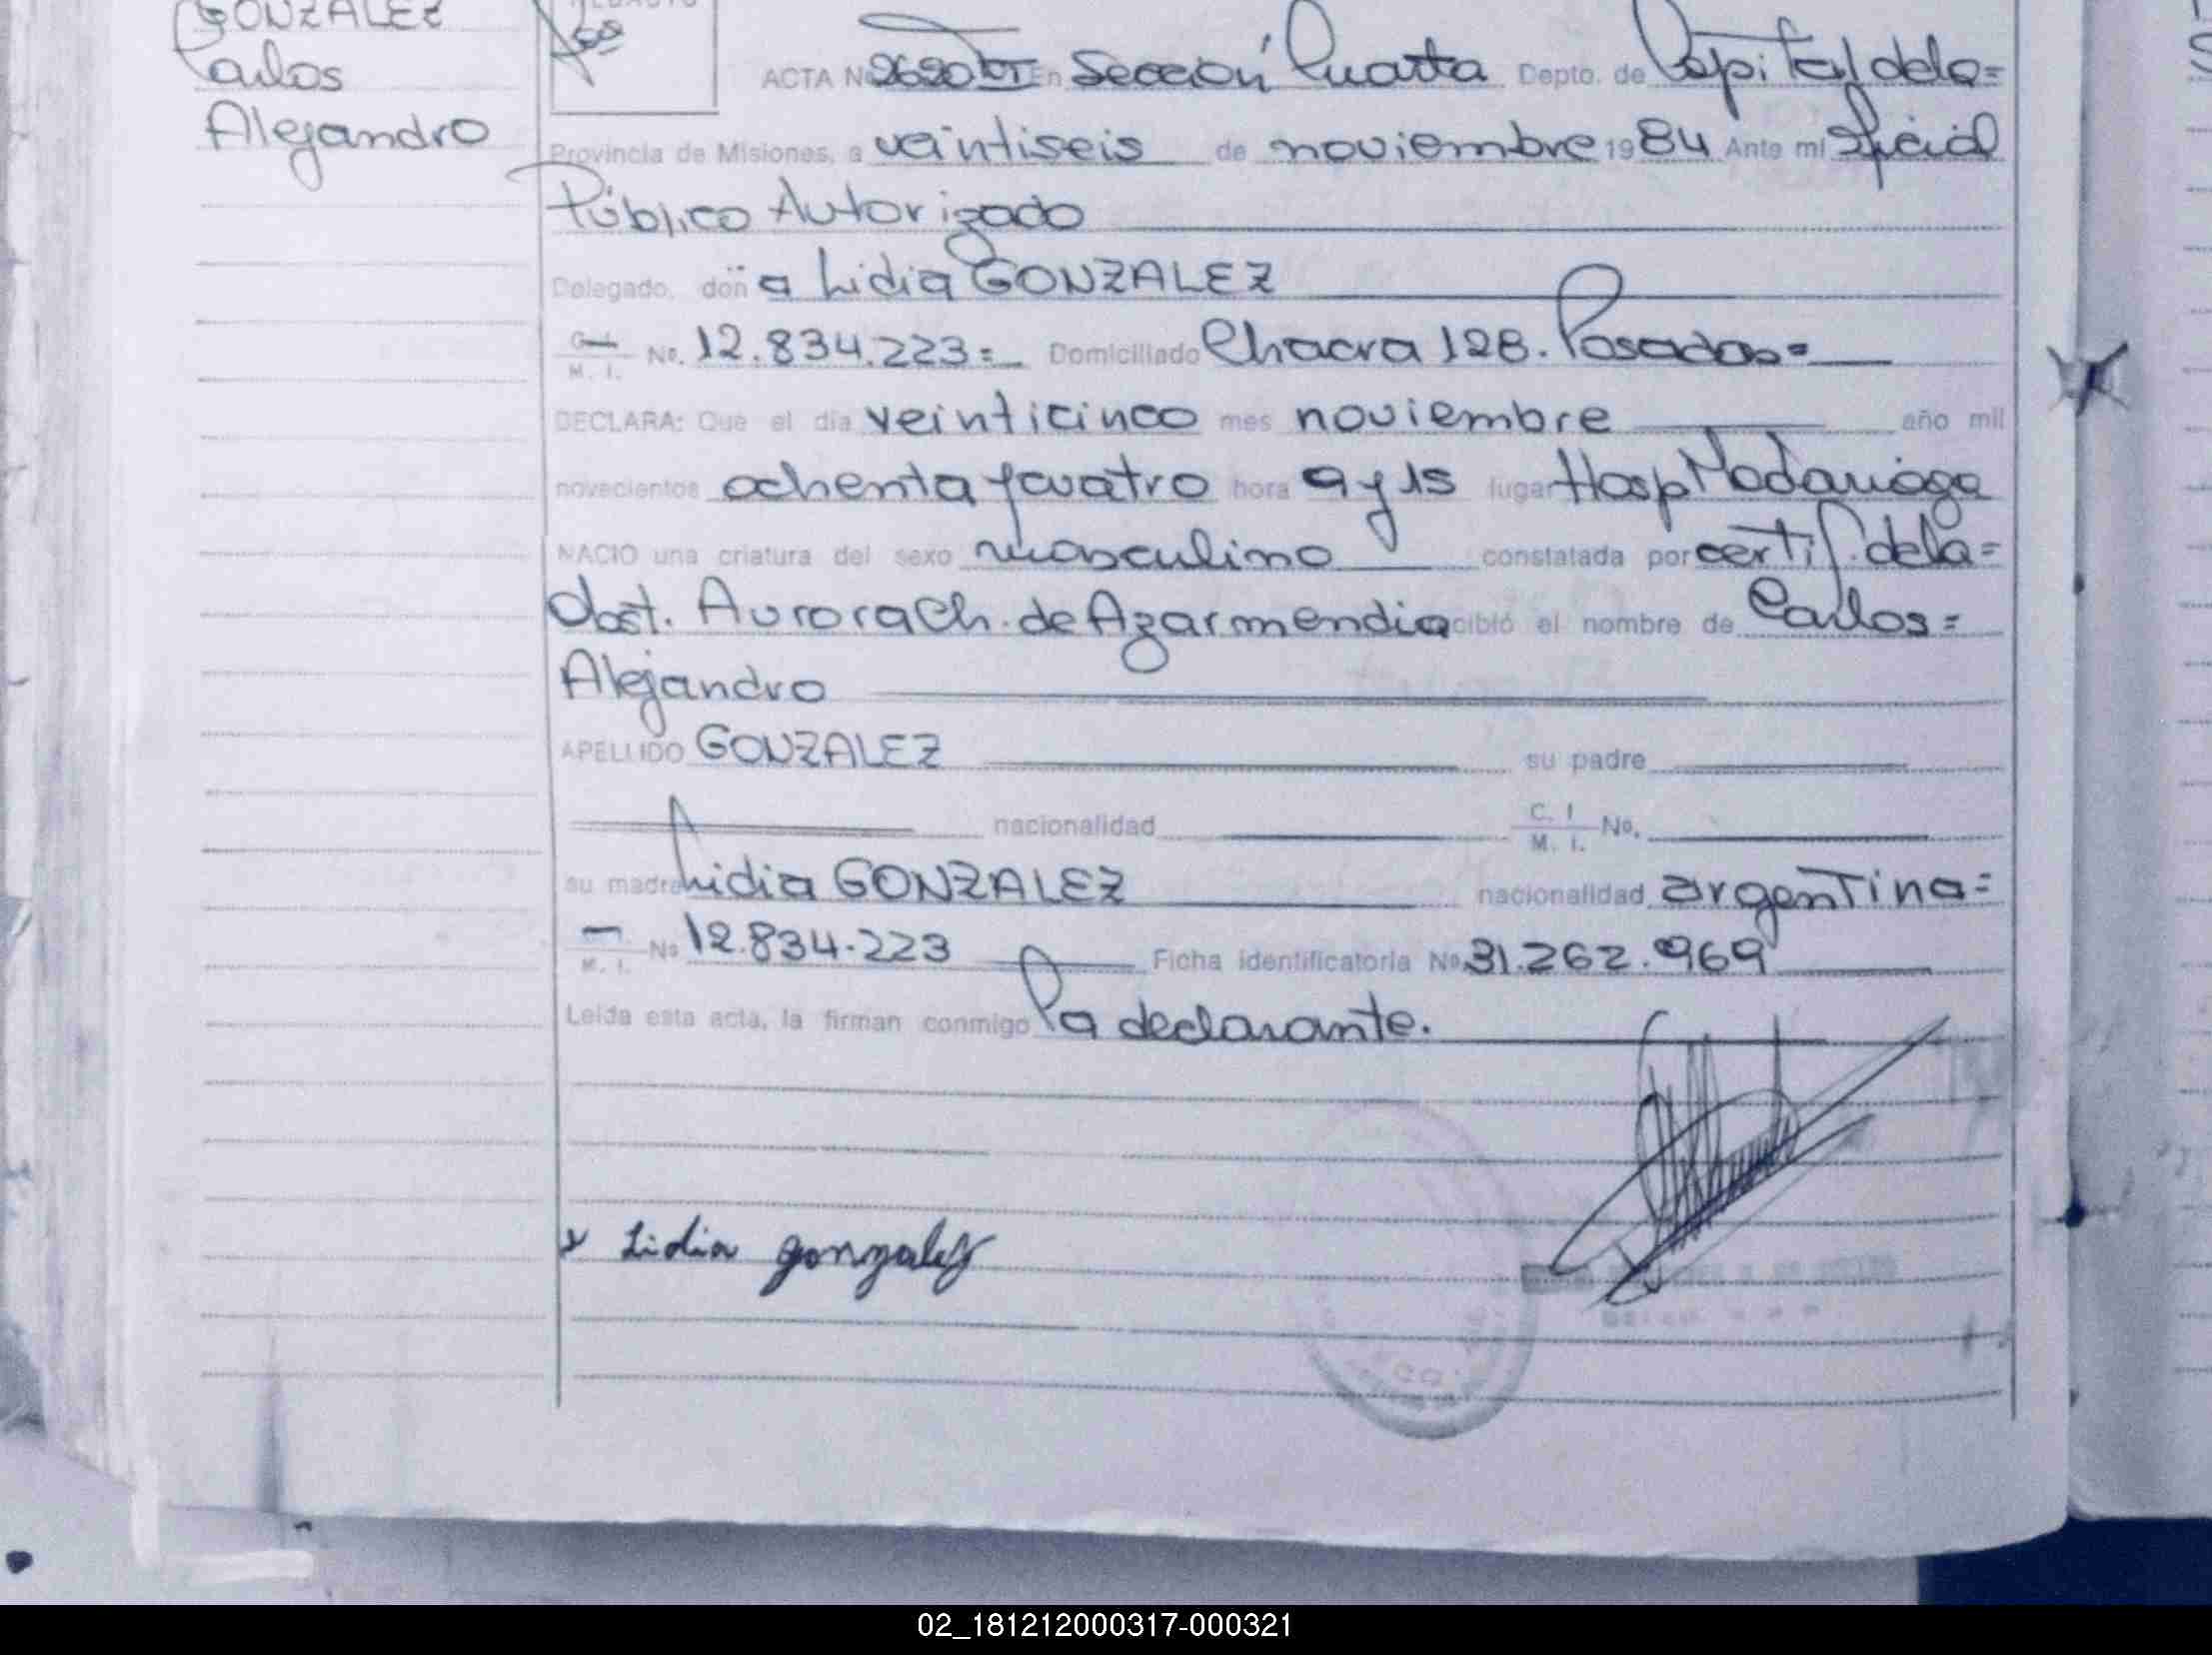 GONZALEZ
Carlos
Alejandro
ACTA No 2620 En Sección Cuarta Depto. de Capital de la =
Provincia de Misiones, a veintiseis de noviembre 1984 Ante mí Oficial
Público Autorizado
Delegado, doña Lidia GONZALEZ
M. I. No. 12.834.223 = Domiciliado Chacra 128. Posadas =
DECLARA: Que el día veinticinco mes noviembre año mil
novecientos ochenta y cuatro hora 9 y 15 lugar Hosp Madariaga
NACIO una criatura del sexo masculino constatada por certif. de la =
Obst. Aurora Ch. de Azarmendia cibió el nombre de Carlos =
Alejandro
APELLIDO GONZALEZ su padre
nacionalidad C. I M. I. No.
su madre Lidia GONZALEZ nacionalidad argentina =
M. I. No 12.834.223 Ficha identificatoria No 31.262.969
Leída esta acta, la firman conmigo la declarante.
x Lidia gonzalez
02_181212000317-000321